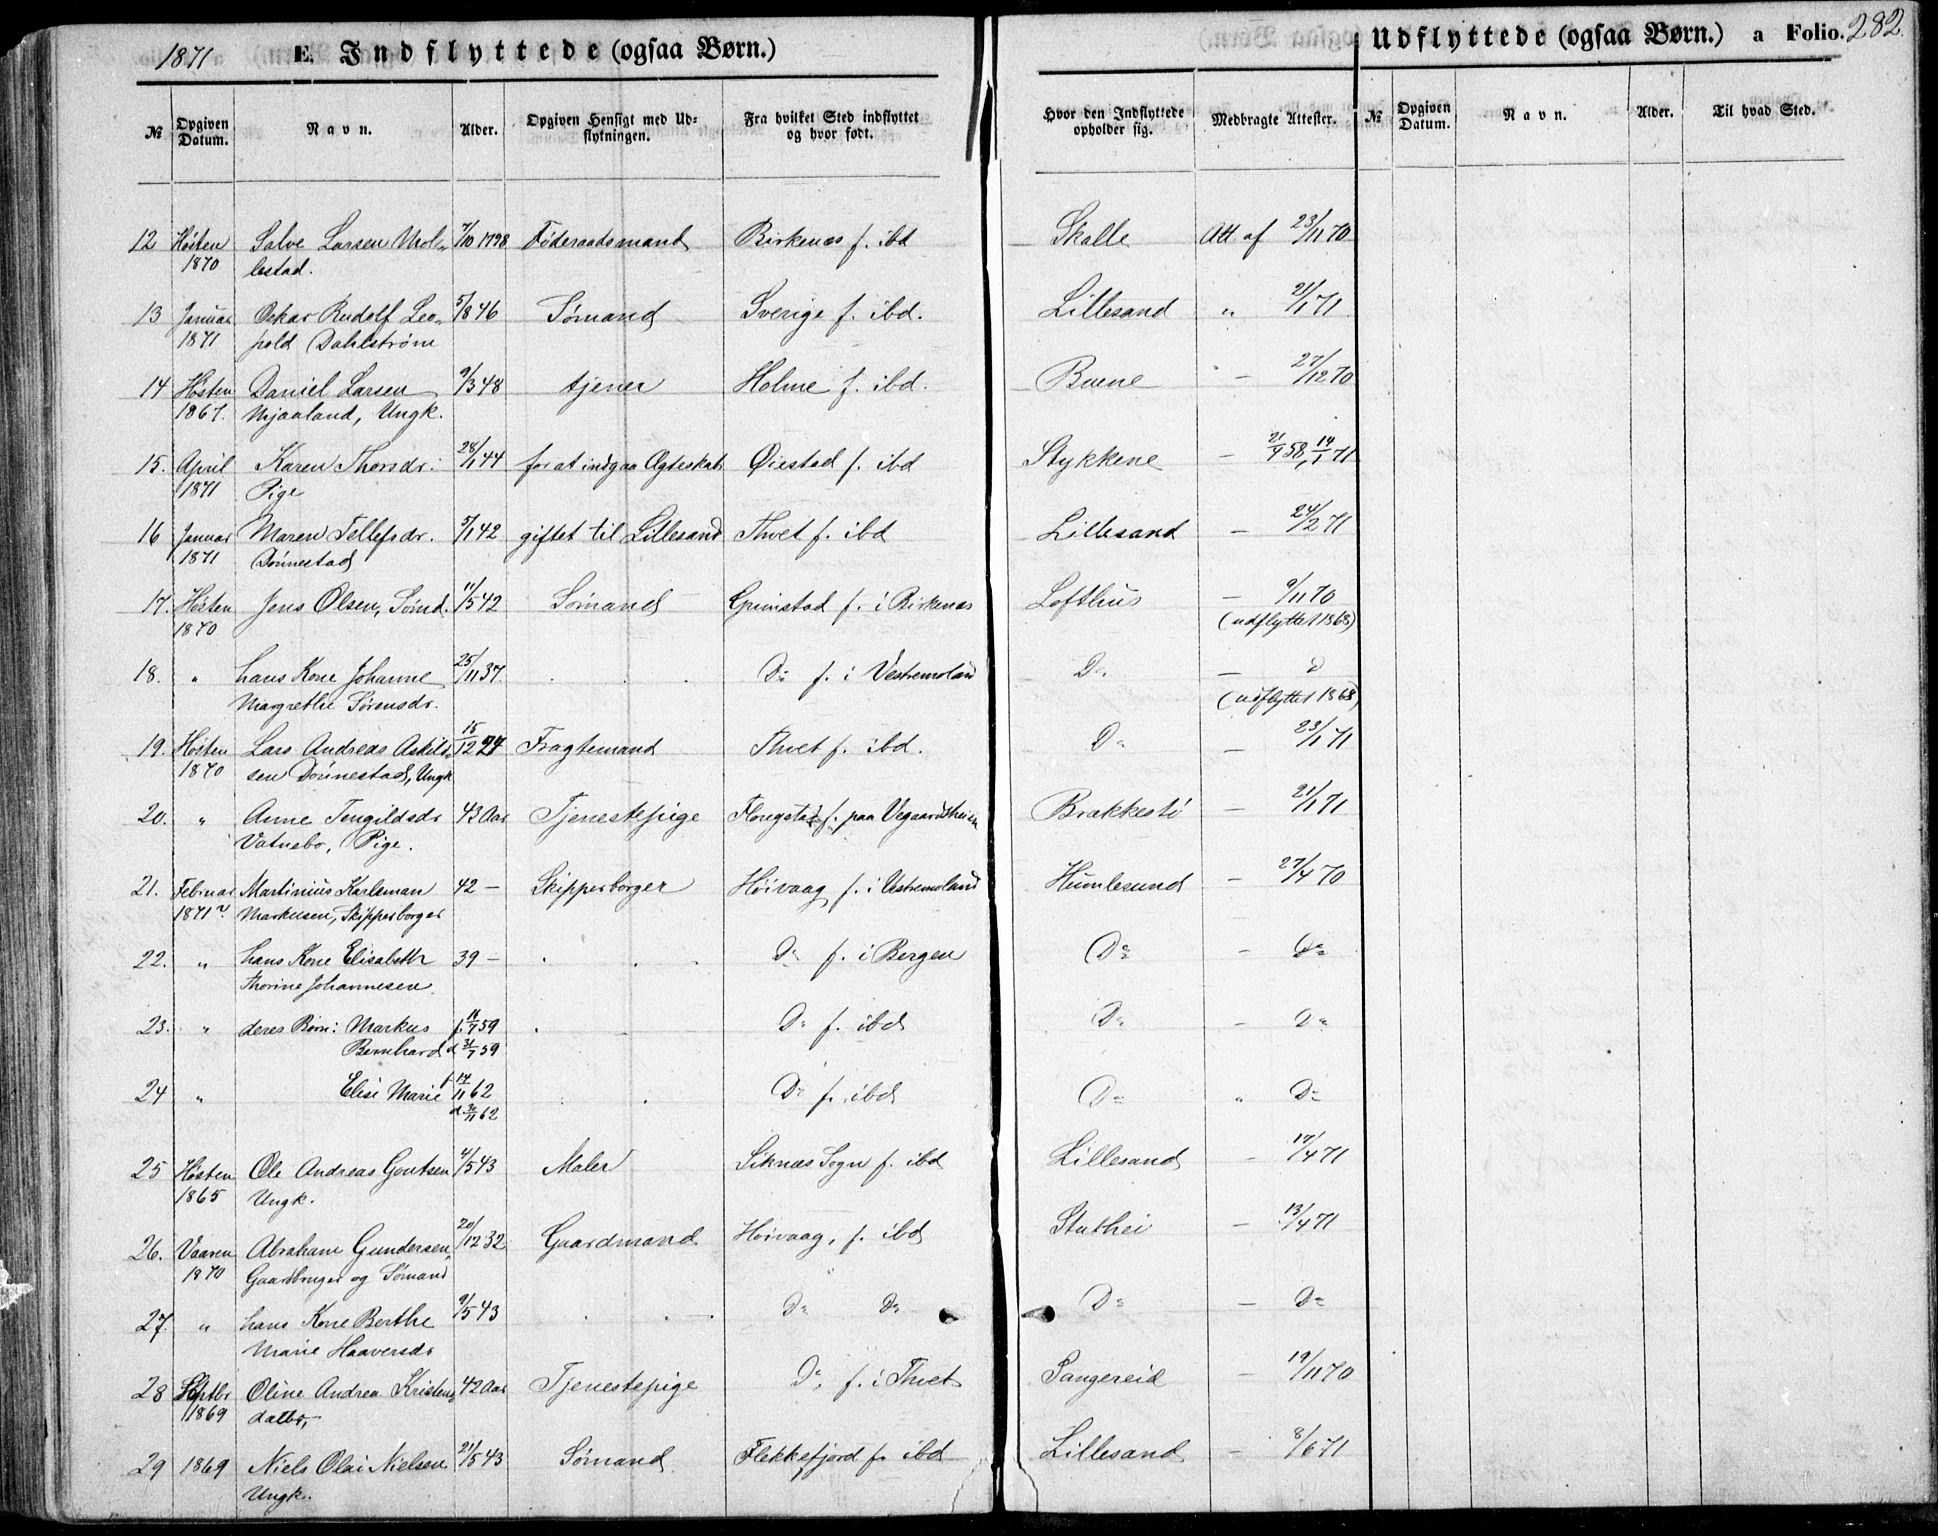 1871 E. Indflyttede (ogsaa Børn.)
Udflyttede (ogsaa Børn.) a Folio. 282.
№ Opgiven Datum. Navn. Alder. Opgiven Hensigt med Udflytningen. Fra hvilket Sted indflyttet og hvor født. Hvor den Indflyttede opholder sig. Medbragte Attester. № Opgiven Datum. Navn. Alder. Til hvad Sted.
12 Høsten Salve Larsen Mol- 7/10 1798 Føderaadsmand Birkenæs f. ibd Skalle Att af 23/11 70
1870 lestad.
13 Januar Oskar Rudolf Leo- 5/8 46 Sømand Sverige f. ibd. Lillesand " 21/1 71
1871 pold Dahlstrøm
14 Høsten Daniel Larsen 9/3 48 tjener Holme f. ibd. Buene - 27/12 70
1867. Mjaaland, Ungk.
15. April Karen Thorsdr: 28/1 44 for at indgaa Ægteskab Øiestad f. ibd Stykkene - 21/9 58, 14/1 71
1871 Pige
16 Januar Maren Tellefsdr. 5/1 42 giftet til Lillesand Thvet f. ibd Lillesand - 24/2 71
1871 Dønnestad
17. Høsten Jens Olsen, Sømd. 11/5 42 Sømand Grimstad f. i Birkenæs Lofthus - 9/11 70
1870 (udflyttet 1868)
18. " hans Kone Johanne 25/11 37 Do f. i Vestremoland Do - D
Margrethe Sørensdr. (udflyttet 1868)
19. Høsten Lars Andreas Askils- 15/12 27 Fragtemand Thvet f. ibd. Do - 23/1 71
1870 sen Dønnestad, Ungk
20. " Anne Tengildsdr 43 Aar Tjenestepige f. paa Vegaardsheien Brækkestø - 21/1 71
Vatnebo, Pige.
21. Februar Martinius Karleman 42 - Skipperborger Høivaag f. i Vestremoland Humlesund - 27/4 70
1871 Markusen, Skipperborger
22. " hans Kone Elisabeth 39 - Do f. i Bergen Do - Do
Thorine Johannesen
23. " deres Børn: Markus f. 14/7 59 Do f. ibd Do - Do
Bernhard d 31/7 59
24 " Elise Marie f. 14/11 62 Do f. ibd Do " Do
d 30/11 62
25 Høsten Ole Andreas Gontsen 4/5 43 Maler Siknæs Sogn f. ibd Lillesand - 17/4 71
1865 Ungk.
26. Vaaren Abraham Gundersen, 20/12 32 Gaardmand Høivaag, f. ibd Stuthei - 13/4 71
1870 Gaardbruger og Sømand
27. " hans Kone Berthe 9/5 43 Do Do Do - Do
Marie Haaversdr
28 Septbr Oline Andrea Kristens 42 Aar Tjenestepige Do, f. i Thvet Sangereid - 19/11 70
1869 datter,
29 1869 Niels Olai Nielsen 21/5 43 Sømand Flekkefjord f. ibd Lillesand - 8/6 71
Ungk.